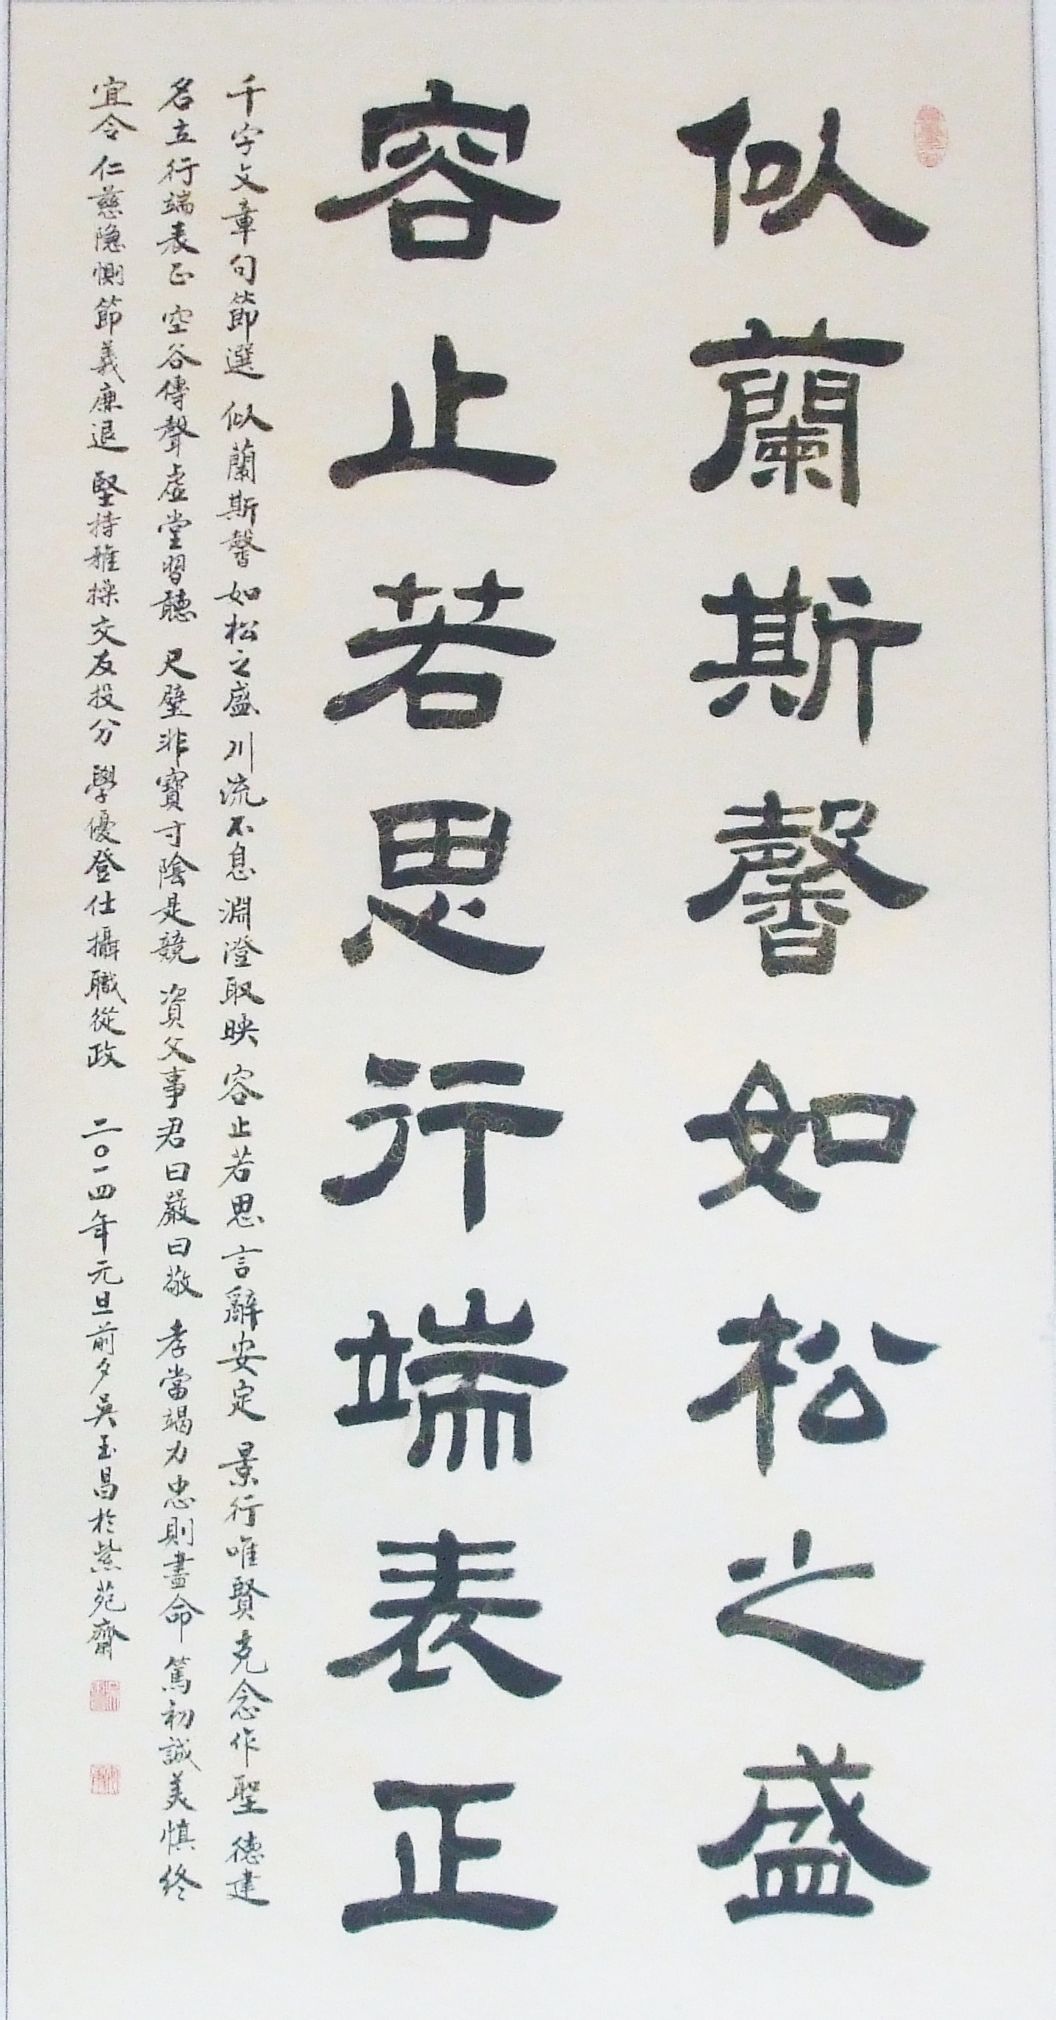 似蘭斯馨如松之盛
容止若思行端表正
千字文章句節選 似蘭斯馨如松之盛 川流不息淵澄取映 容止若思 言辭安定 景行唯賢克念作聖 德建
名立行端表正 空谷傳聲虛堂習聽 尺璧非寶寸陰是競 資父事君曰嚴曰敬 孝當竭力忠則盡命 篤初誠美慎終
宜令 仁慈隐惻節義廉退 堅持雅操交友投分 學優登仕攝職從政 二〇一四年元旦前夕吳玉昌於紫苑齋